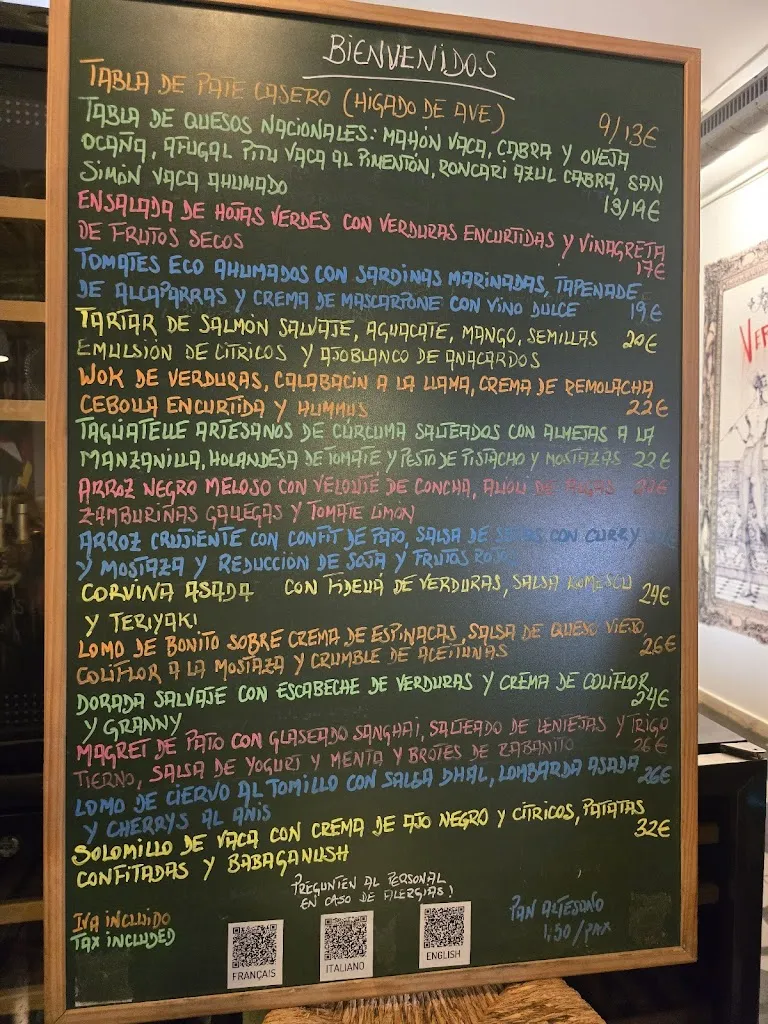 BIENVENIDOS
TABLA DE PATE CASERO (HIGADO DE AVE) 9/13€
TABLA DE QUESOS NACIONALES: MAHÓN VACA, CABRA Y OVEJA
OCAÑA, AFUGAL PITU VACA AL PIMENTÓN, RONCARI AZUL CABRA, SAN
SIMÓN VACA AHUMADO 13/19€
ENSALADA DE HOJAS VERDES CON VERDURAS ENCURTIDAS Y VINAGRETA
DE FRUTOS SECOS 17€
TOMATES ECO AHUMADOS CON SARDINAS MARINADAS, TAPENADE
DE ALCAPARRAS Y CREMA DE MASCARPONE CON VINO DULCE 19€
TARTAR DE SALMÓN SALVAJE, AGUACATE, MANGO, SEMILLAS 20€
EMULSIÓN DE CÍTRICOS Y AJOBLANCO DE ANACARDOS
WOK DE VERDURAS, CALABACIN A LA LLAMA, CREMA DE REMOLACHA
CEBOLLA ENCURTIDA Y HUMMUS 22€
TAGLIATELLE ARTESANOS DE CÚRCUMA SALTEADOS CON ALMEJAS A LA
MANZANILLA, HOLANDESA DE TOMATE Y PESTO DE PISTACHO Y MOSTAZAS 22€
ARROZ NEGRO MELOSO CON VELOUTE DE CONCHA, ALIOLI DE
ZAMBURIÑAS GALLEGAS Y TOMATE LIMON
ARROZ CRUJIENTE CON CONFIT DE PATO, SALSA DE SETAS CON CURRY
Y MOSTAZA Y REDUCCIÓN DE SOJA Y FRUTOS ROJOS
CORVINA ASADA CON FIDEUÁ DE VERDURAS, SALSA ROMESCU 24€
Y TERIYAKI
LOMO DE BONITO SOBRE CREMA DE ESPINACAS, SALSA DE QUESO VIEJO
COLIFLOR A LA MOSTAZA Y CRUMBLE DE ACEITUNAS 26€
DORADA SALVAJE CON ESCABECHE DE VERDURAS Y CREMA DE COLIFLOR
Y GRANNY 24€
MAGRET DE PATO CON GLASEADO SANGHAI, SALTEADO DE LENTEJAS Y TRIGO
TIERNO, SALSA DE YOGURT Y MENTA Y BROTES DE RABANITO 26€
LOMO DE CIERVO AL TOMILLO CON SALSA DHAL, LOMBARDA ASADA 26€
Y CHERRYS AL ANIS
SOLOMILLO DE VACA CON CREMA DE AJO NEGRO Y CÍTRICOS, PATATAS
CONFITADAS Y BABAGANUSH 32€
PREGUNTEN AL PERSONAL
EN CASO DE ALERGIAS!
IVA INCLUIDO
TAX INCLUDED
PAN ARTESANO
1,50/PAX
FRANÇAIS
ITALIANO
ENGLISH